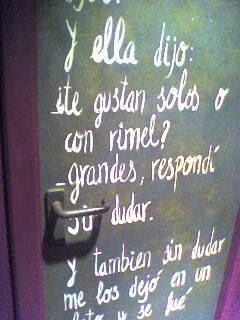 y ella dijo:
¿te gustan solos o
con rimel?
_grandes, respondí
sin dudar.
y tambien sin dudar
me los dejó en un
plato y se fué